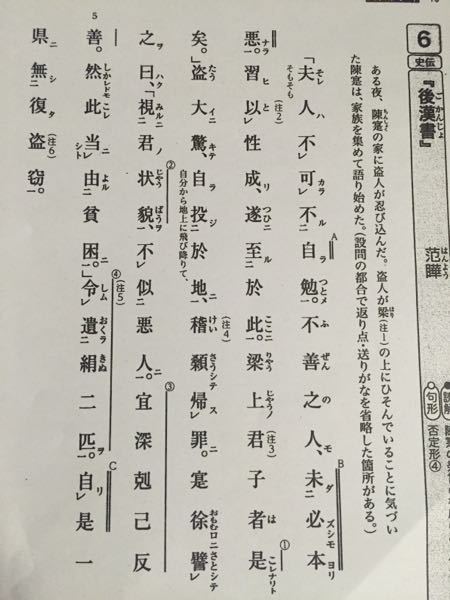 6
史伝
『後漢書』
ごかんじょ
范曄
はんよう
句形
否定形④
ある夜、陳寔の家に盗人が忍び込んだ。盗人が梁(注1)の上にひそんでいることに気づい
た陳寔は、家族を集めて語り始めた。(設問の都合で返り点・送りがなを省略した箇所がある。)
「夫人不可不自勉。不善之人、未必本
悪。習以性成、遂至於此。梁上君子者是
矣。」盗大驚、自投於地、稽顙帰罪。寔徐譬
自分から地上に飛び降りて、
之曰、「視君状貌、不似悪人。宜深剋己反
善。然此当由貧困。」令遺絹二匹。自是一
県無復盗窃。